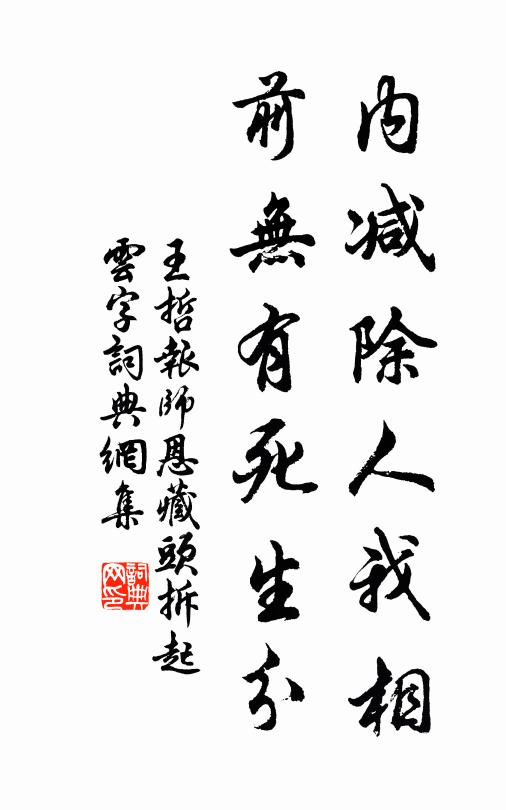 内减除人我相
前無有死生分
王哲報師恩藏頭拆起
雲字詞典網集
詞典网印